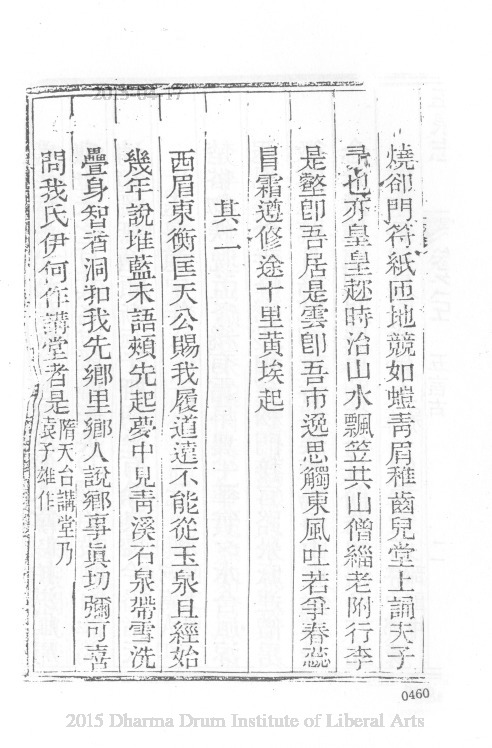 燒卻門符紙匝地競如螘青眉稚齒兒堂上誦夫子
也亦皇皇趂時治山水飄笠共山僧緇老附行李
是壑卽吾居是雲卽吾市逸思觸東風吐若爭春蕊
冒霜遵修途十里黃埃起
其二
西眉東衡匡天公賜我履道遠不能從玉泉且經始
幾年說堆藍未語頰先起夢中見靑溪石泉帶雪洗
疊身智者洞扣我先鄉里鄉人說鄉事眞切彌可喜
問我氏伊何作講堂者是隋天台講堂乃
袁子雄作
0460
2015 Dharma Drum Institute of Liberal Arts